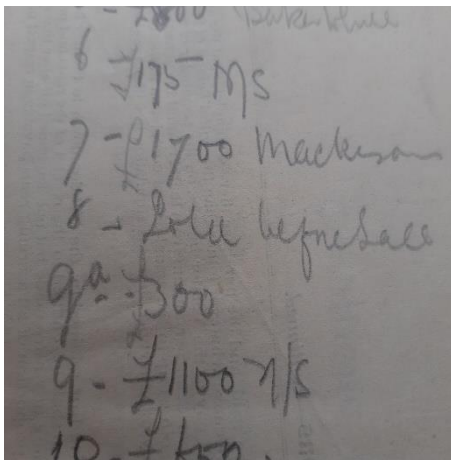 6 £175 M/S
7 - £1700 Mackeson
8 - Sold before Sale
9a - £300
9 - £1100 N/S
10 - £